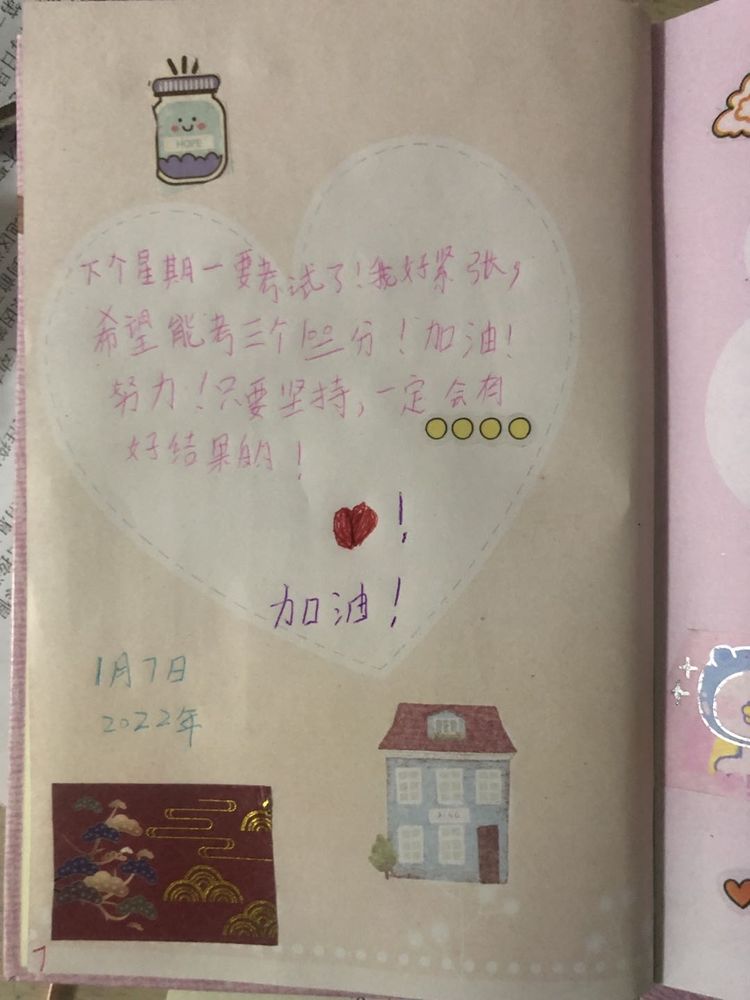 HOPE
下个星期一要考试了!我好紧张,
希望能考三个100分!加油!
努力!只要坚持,一定会有
好结果的!
!
加油!
1月7日
2022年
7